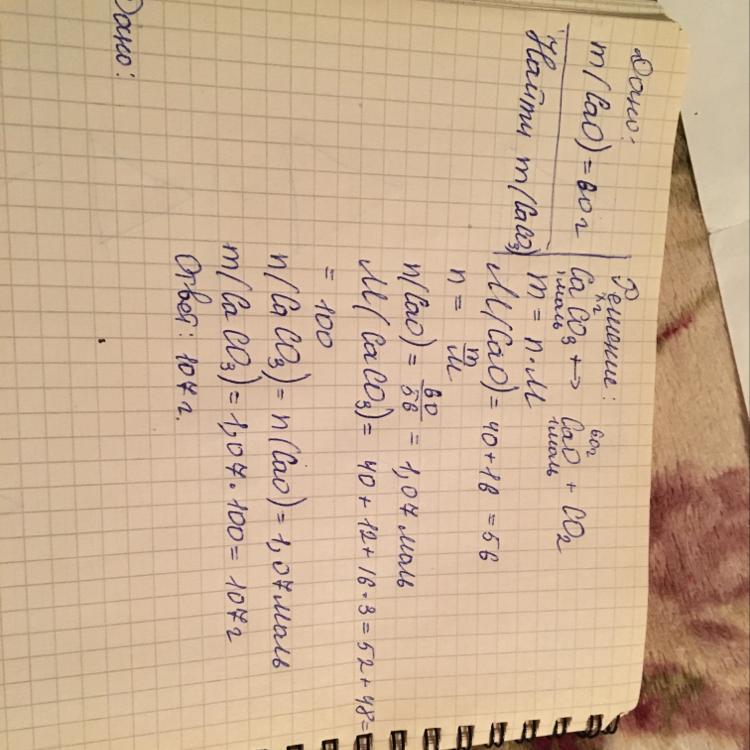 Дано:
m(CaO) = 60 г
Найти m(CaCO3)
Решение:
х г 60 г
CaCO3 ↔ CaO + CO2
1моль 1моль
m = n · M
M(CaO) = 40 + 16 = 56
n = m/M
n(CaO) = 60/56 = 1,07 моль
M(CaCO3) = 40 + 12 + 16 · 3 = 52 + 48 =
= 100
n(CaCO3) = n(CaO) = 1,07 моль
m(CaCO3) = 1,07 · 100 = 107 г
Ответ: 107 г.
Дано: